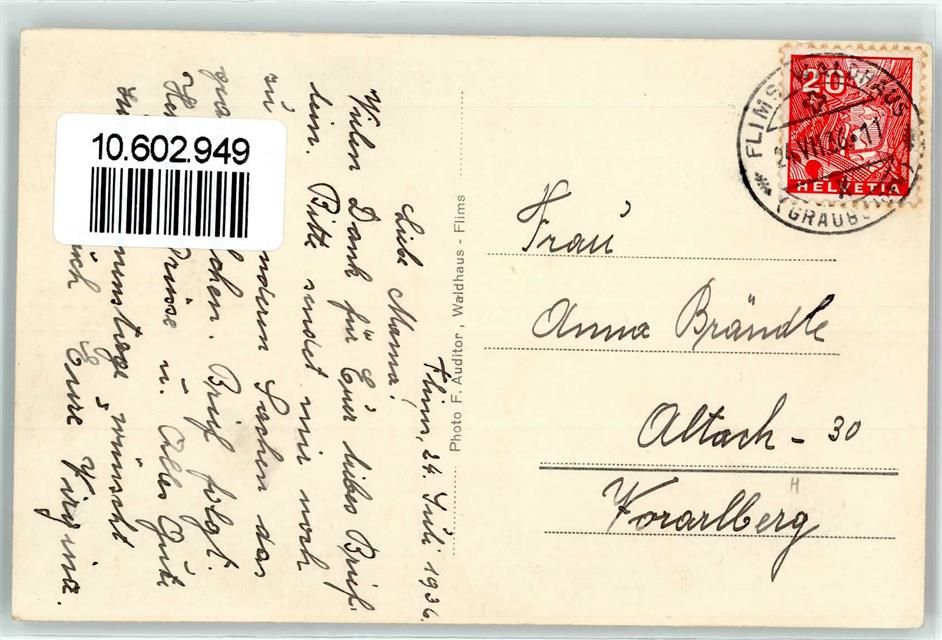 Flims, 24. Juli 1936.
Liebe Mama!
Vielen Dank für Euer liebes Brief-
lein. Bitte sendet mir noch
zu anderen Sachen das
Brief folgt.
Grüsse u. Alles Gute
wünscht
Eure Virginia.
Photo F. Auditor, Waldhaus - Flims
10.602.949
20
HELVETIA
FLIMS WALDHAUS
24.VII.36.-11
(GRAUB
Frau
Anna Brändle
Altach - 30
Vorarlberg
H